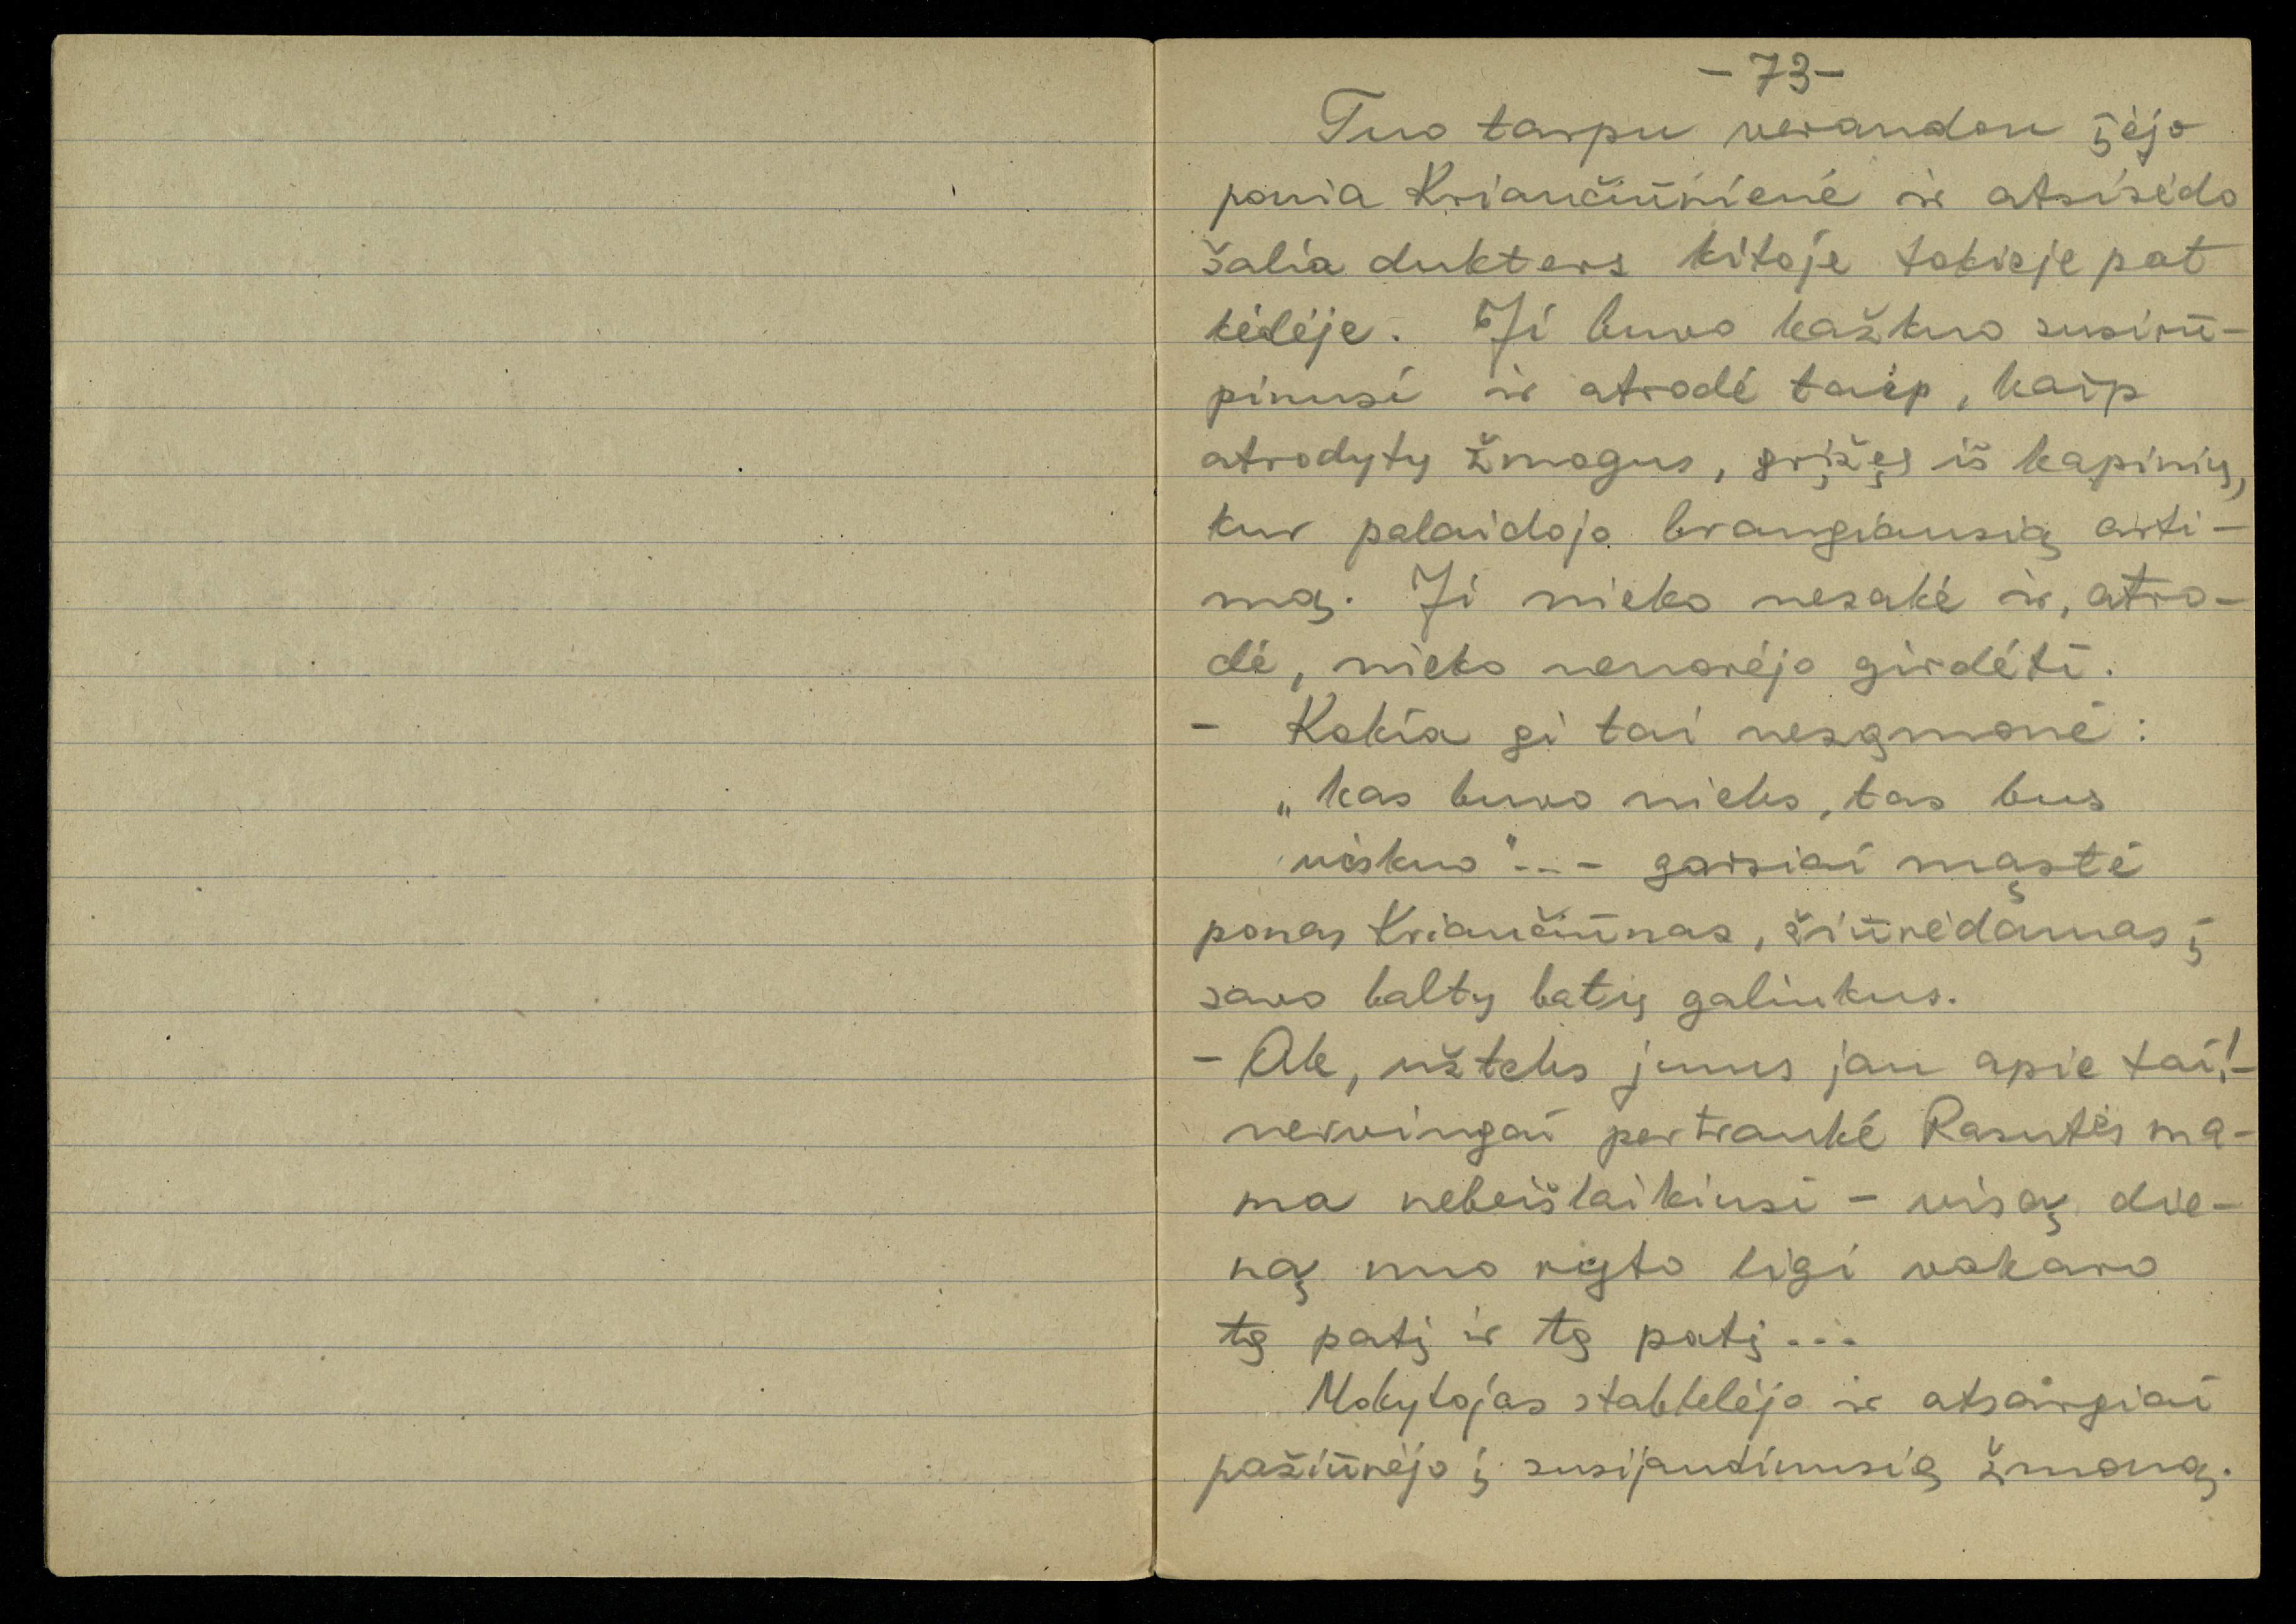 - 73 -
Tuo tarpu verandon įėjo
ponia Kriaučiūnienė ir atsisėdo
šalia dukters kitoje tokioje pat
kėdėje. Ji buvo kažkuo susirū-
pinusi ir atrodė taip, kaip
atrodytų žmogus, grįžęs iš kapinių,
kur palaidojo brangiausią arti-
mą. Ji nieko nesakė ir, atro-
dė, nieko nenorėjo girdėti.
- Kokia gi tai nesąmonė:
„kas buvo nieks, tas bus
viskuo"... - garsiai mąstė
ponas Kriaučiūnas, žiūrėdamas į
savo baltų batų galiukus.
- Ak, užteks jums jau apie tai! -
nervingai pertraukė Rasutės ma-
ma nebeišlaikiusi - visą die-
ną nuo ryto ligi vakaro
tą patį ir tą patį...
Mokytojas stabtelėjo ir atsargiai
pažiūrėjo į susijaudinusią žmoną.